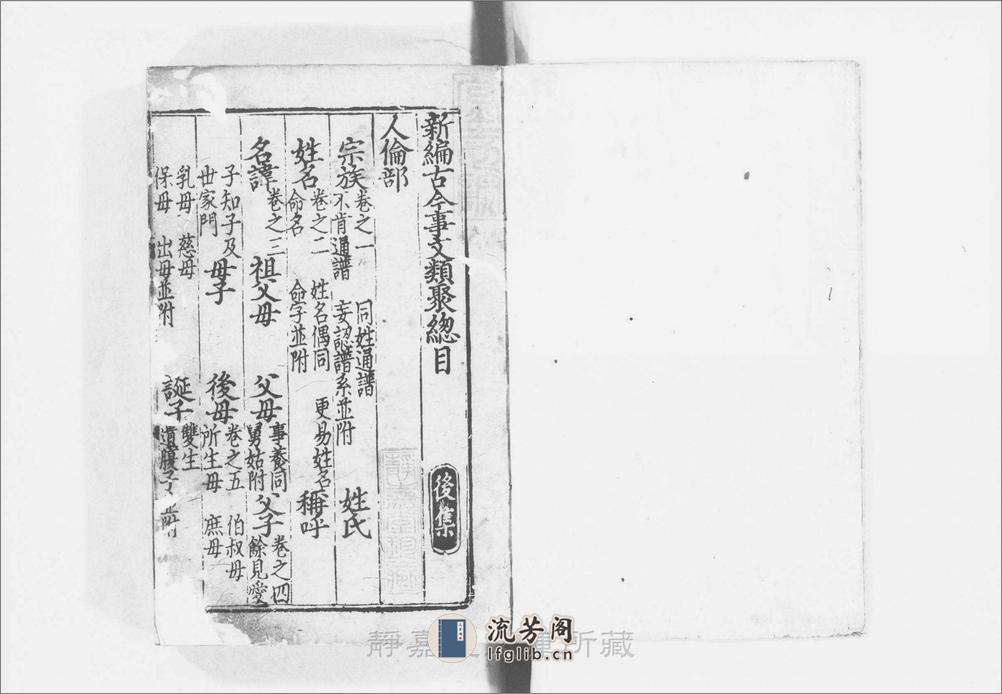 新編古今事文類聚總目 後集
人倫部
宗族 卷之一 不肯通譜 同姓通譜 妄認譜系並附 姓氏
姓名 卷之二 命名 姓名偶同 命字並附 更易姓名 稱呼
名諱 卷之三 祖父母 父母 事養同 舅姑附 父子 卷之四 餘見愛
子知子及 世家門 母子 後母 卷之五 所生母 伯叔母 庶母
乳母 慈母 保母 出母並附 誕子 雙生 遺腹子並附
流芳阁
lfglib.cn
靜嘉 所藏